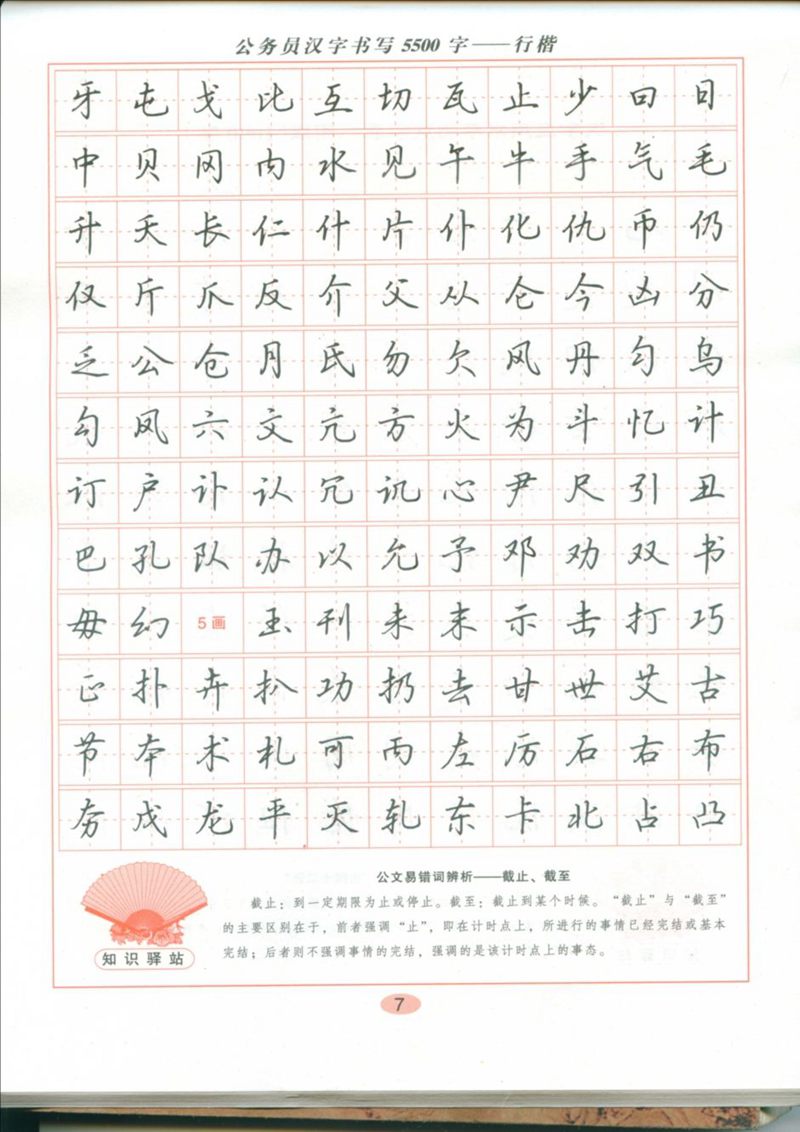 公务员汉字书写5500字——行楷
牙屯戈比互切瓦止少曰日
中贝冈内水见午牛手气毛
升夭长仁什片仆化仇币仍
仅斤爪反介父从仑今凶分
乏公仓月氏勿欠风丹匀乌
勾凤六文亢方火为斗忆计
订户讣认冗讥心尹尺引丑
巴孔队办以允予邓劝双书
毋幻5画玉刊未末示击打巧
正扑卉扒功扔去甘世艾古
节本术札可丙左厉石右布
夯戊龙平灭轧东卡北占凸
公文易错词辨析——截止、截至
截止：到一定期限为止或停止。截至：截止到某个时候。“截止”与“截至”
的主要区别在于，前者强调“止”，即在计时点上，所进行的事情已经完结或基本
完结；后者则不强调事情的完结，强调的是该计时点上的事态。
知识驿站
7